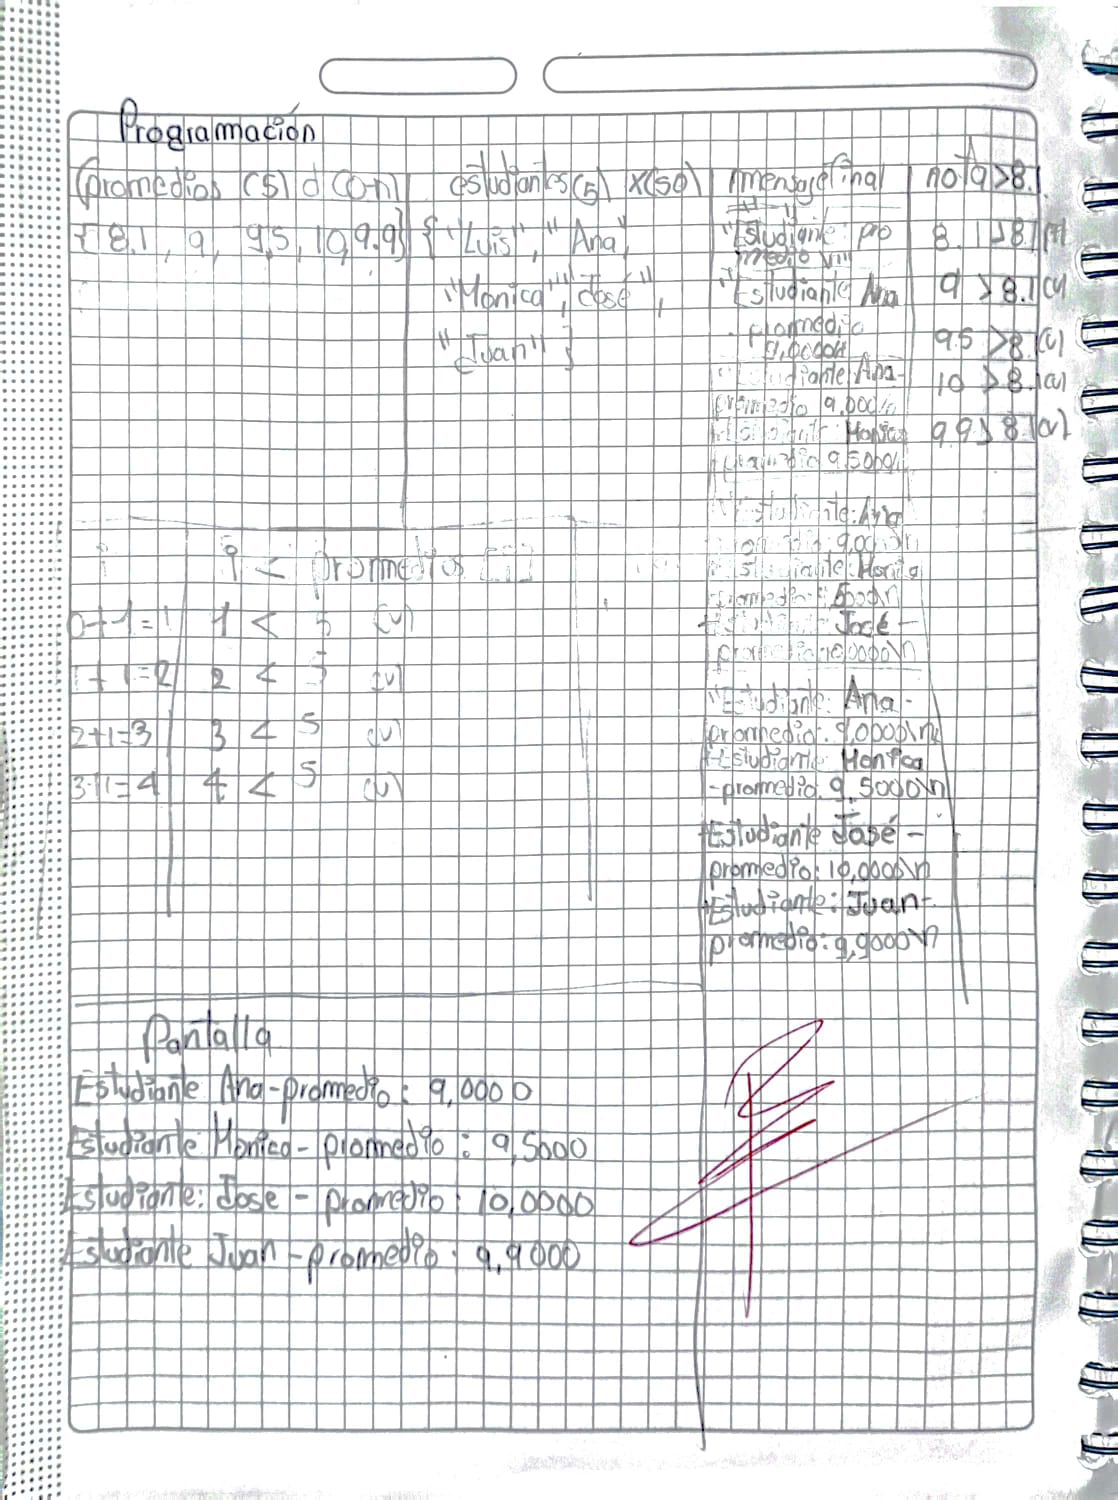 Programación
promedios (5) d (0-n)
{8.1, 9, 9.5, 10, 9.9}
estudiantes(5) x(50)
{"Luis", "Ana",
"Monica", "José",
"Juan"}
mensaje final
"Estudiante: pro
medio \n"
"Estudiante Ana
- promedio
9,0000\n
Estudiante: Ana-
promedio 9,000\n
Monica
promedio 9,5000\n
Estudiante: Ana
promedio: 9,000\n
Estudiante: Monica
promedio: 
José -
promedio: 10,0000\n
"Estudiante: Ana -
promedio: 9,0000\n
+Estudiante: Monica
-promedio: 9,5000\n
+Estudiante José -
promedio: 10,0000\n
+Estudiante: Juan-
promedio: 9,9000\n
nota >8.1
8.1 >8.1
9 > 8.1 (v)
9.5 >8. (v)
10 > 8.1 (v)
9.9 > 8.1 (v)
i
i < promedios
0+1=1 1 < 5 (v)
1+1=2 2 < 5 (v)
2+1=3 3 < 5 (v)
3+1=4 4 < 5 (v)
Pantalla
Estudiante Ana-promedio: 9,0000
Estudiante Monica- promedio: 9,5000
Estudiante: Jose - promedio: 10,0000
Estudiante Juan -promedio: 9,9000